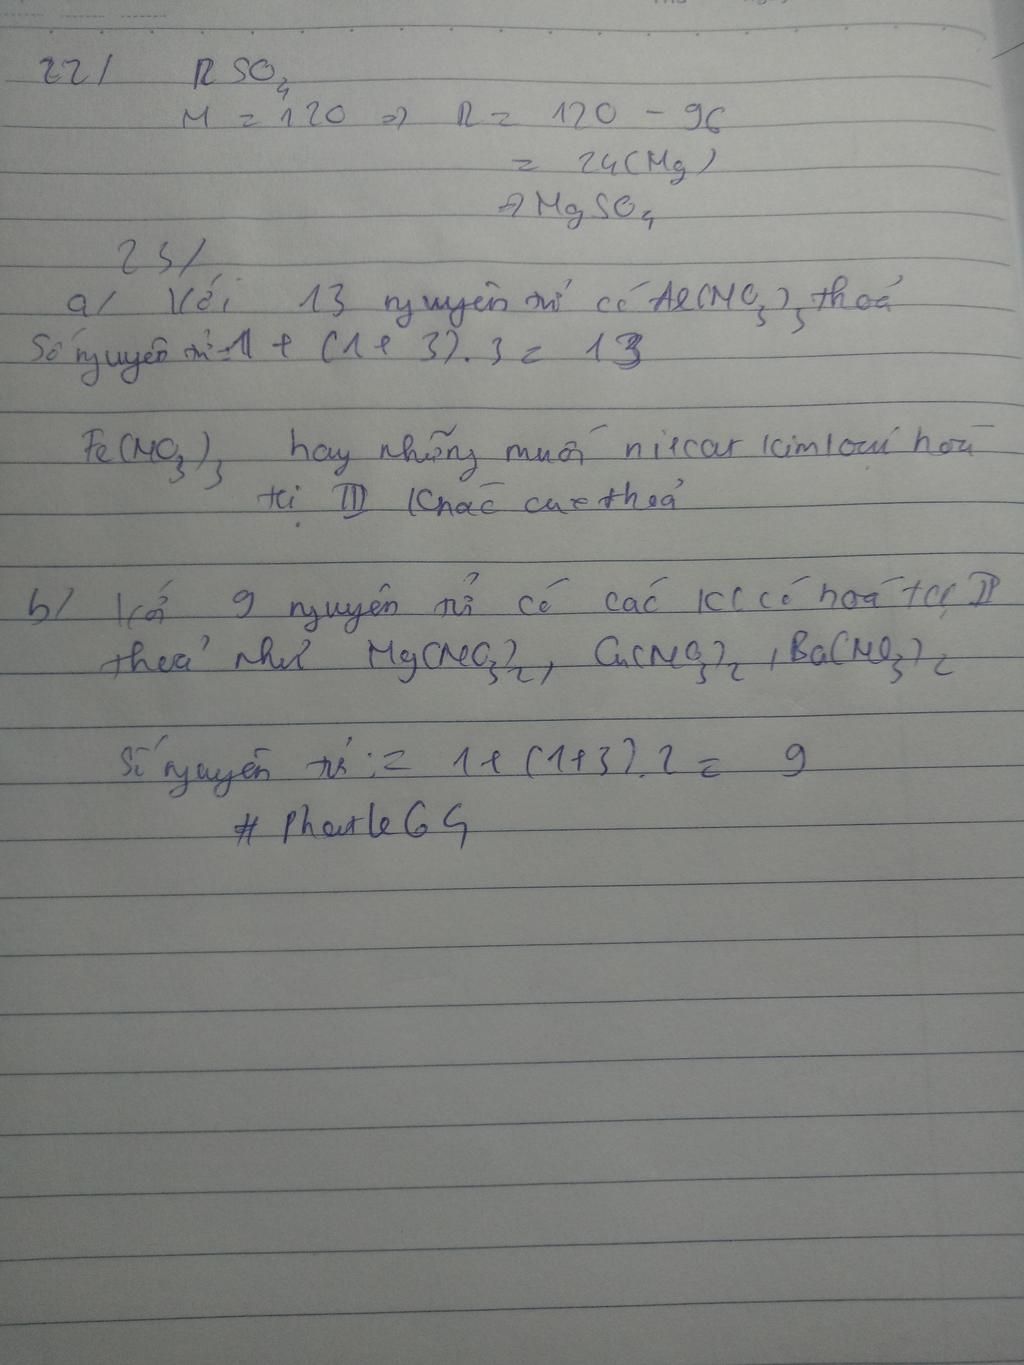 22/ RSO4
M = 120 => R = 120 - 96
= 24(Mg)
=> MgSO4
23/
a/ Với 13 nguyên tử có Al(NO3)3 thoả
Số nguyên tử = 1 + (1 + 3).3 = 13
Fe(NO3)3 hay những muối nitrat kim loại hoá
trị III khác cũng thoả
b/ Với 9 nguyên tử có các KL có hoá trị II
thoả như Mg(NO3)2, Cu(NO3)2, Ba(NO3)2
Số nguyên tử : = 1 + (1+3).2 = 9